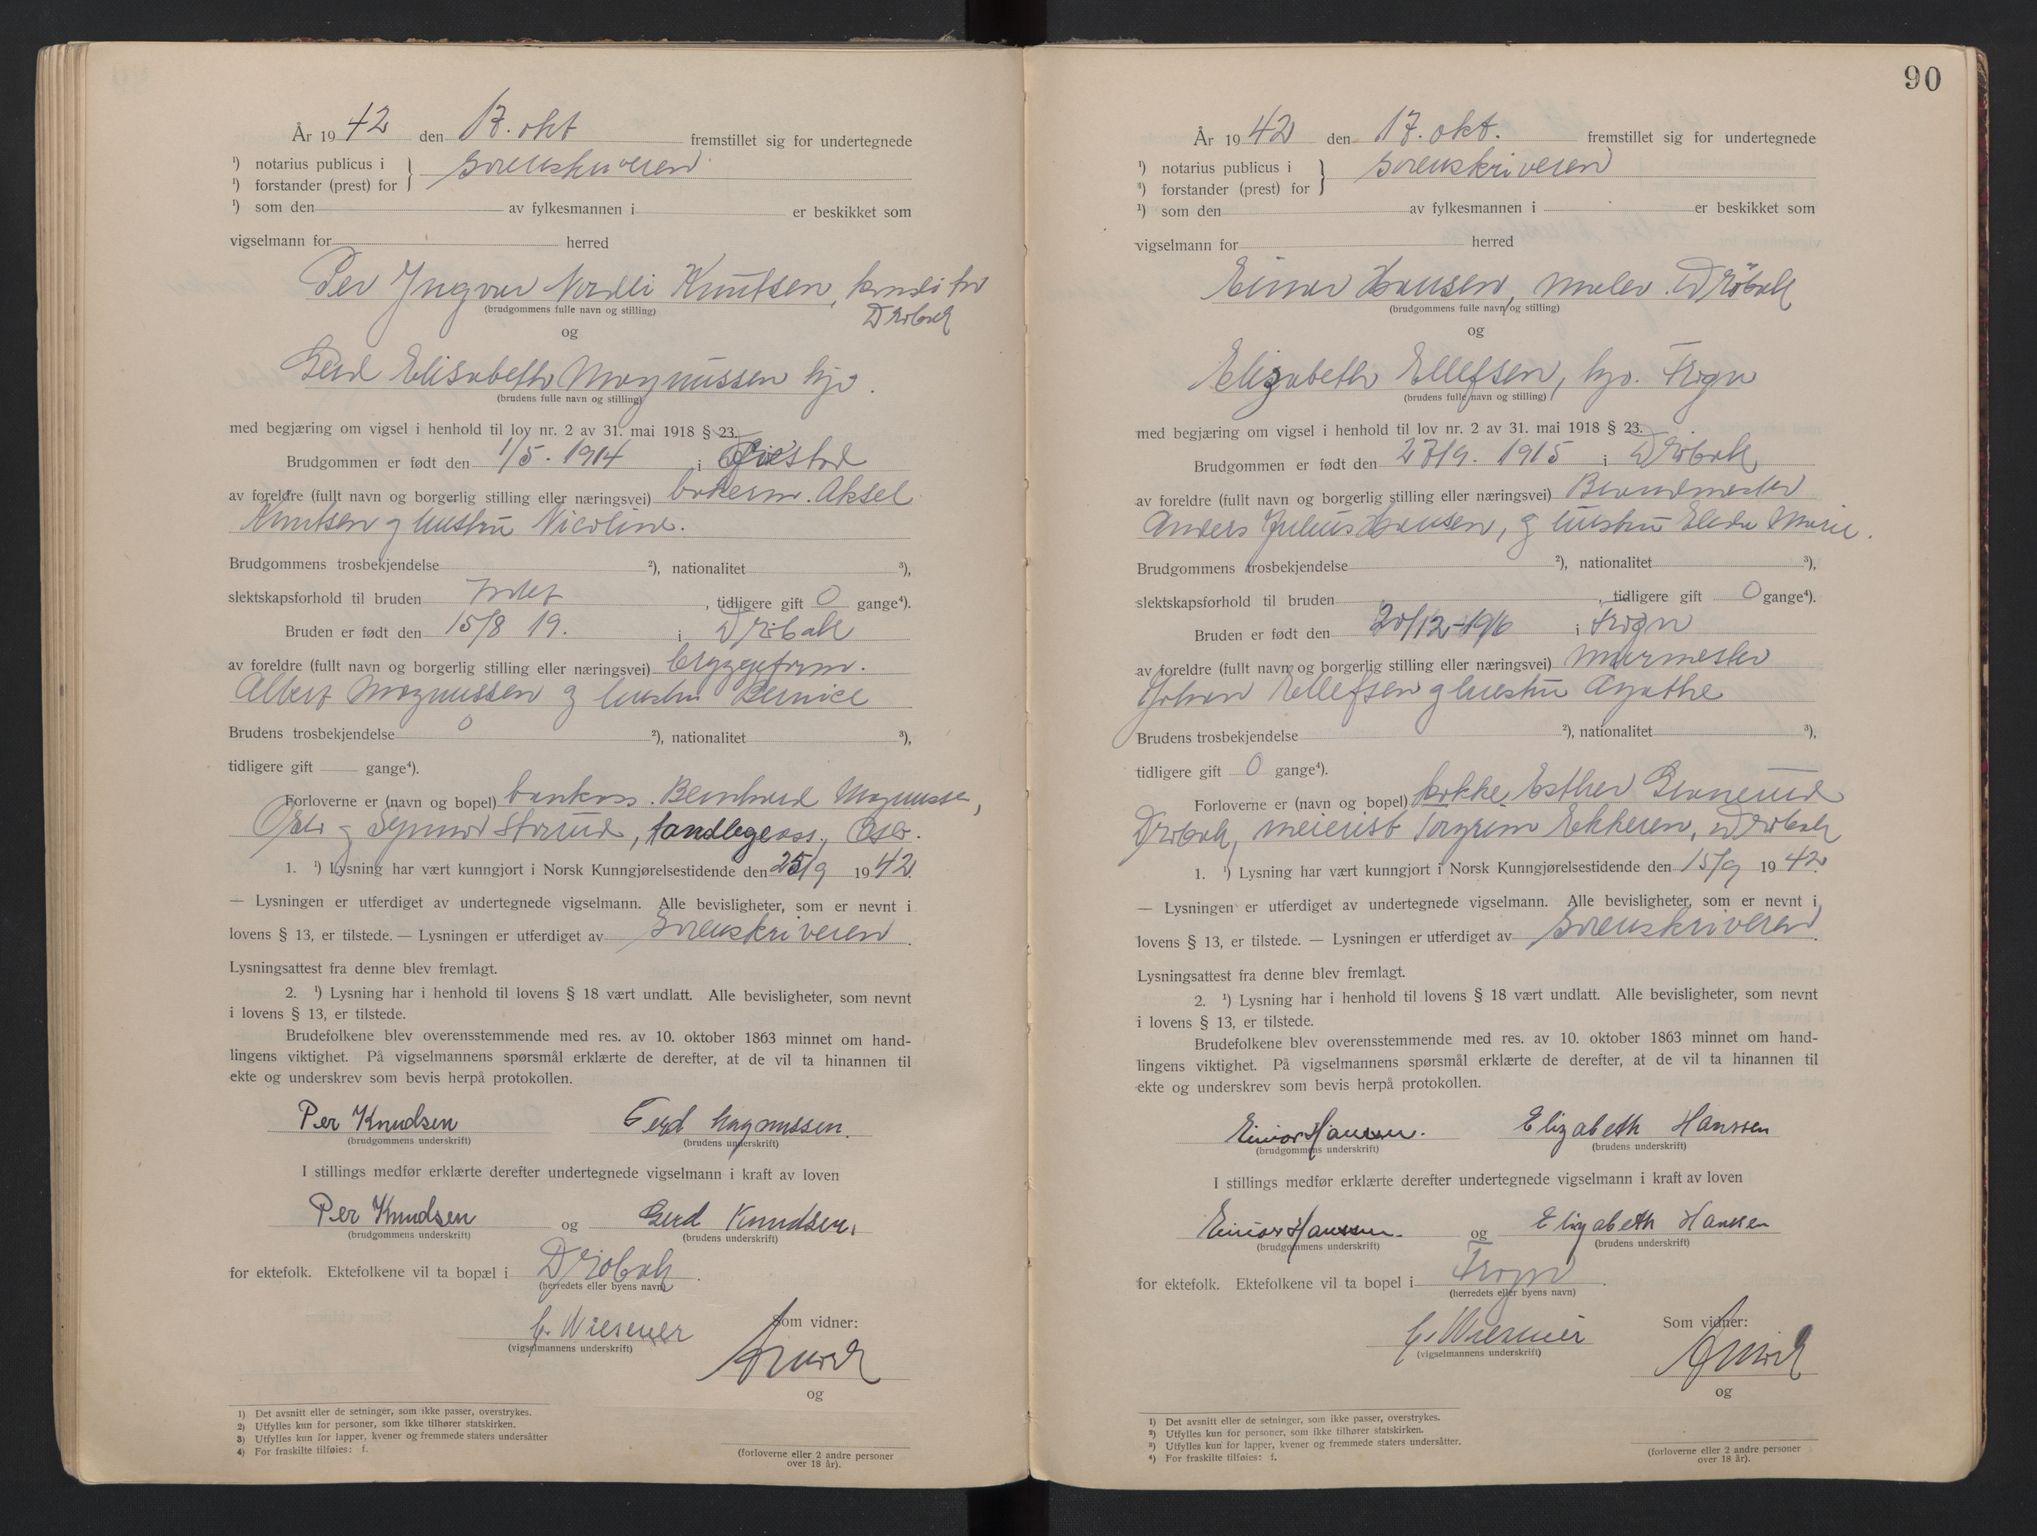 År 1942 den 17. okt fremstillet sig for undertegnede
¹) notarius publicus i } Sorenskriveren
¹) forstander (prest) for
¹) som den av fylkesmannen i er beskikket som
vigselmann for herred
Per Ingvar Nordli Knutsen, konditor
(brudgommens fulle navn og stilling) Drøbak
og
Gerd Elisabeth Magnussen hjv.
(brudens fulle navn og stilling)
med begjæring om vigsel i henhold til lov nr. 2 av 31. mai 1918 § 23.
Brudgommen er født den 1/5. 1914 i
av foreldre (fullt navn og borgerlig stilling eller næringsvei) bakerm. Aksel
Knutsen og hustru Nicoline.
Brudgommens trosbekjendelse ²), nationalitet ³),
slektskapsforhold til bruden Intet, tidligere gift 0 gange⁴).
Bruden er født den 15/8 19. i Drøbak
av foreldre (fullt navn og borgerlig stilling eller næringsvei) bryggeform.
Albert Magnussen og hustru Bernice
Brudens trosbekjendelse 0 ²), nationalitet ³),
tidligere gift gange⁴).
Forloverne er (navn og bopel) bankass. Bernhard Magnussen,
Oslo og Storud, tandlegeass., Oslo.
1. ¹) Lysning har vært kunngjort i Norsk Kunngjørelsestidende den 25/9 1942.
— Lysningen er utferdiget av undertegnede vigselmann. Alle bevisligheter, som er nevnt i
lovens § 13, er tilstede. — Lysningen er utferdiget av Sorenskriveren.
Lysningsattest fra denne blev fremlagt.
2. ¹) Lysning har i henhold til lovens § 18 vært undlatt. Alle bevisligheter, som nevnt
i lovens § 13, er tilstede.
Brudefolkene blev overensstemmende med res. av 10. oktober 1863 minnet om hand-
lingens viktighet. På vigselmannens spørsmål erklærte de derefter, at de vil ta hinannen til
ekte og underskrev som bevis herpå protokollen.
Per Knudsen Gerd Magnussen.
(brudgommens underskrift) (brudens underskrift)
I stillings medfør erklærte derefter undertegnede vigselmann i kraft av loven
Per Knudsen og Gerd Knudsen.
(brudgommens underskrift) (brudens underskrift)
for ektefolk. Ektefolkene vil ta bopæl i Drøbak.
(herredets eller byens navn)
C. Wiesener Som vidner:
(vigselmannens underskrift)
og
1) Det avsnitt eller de setninger, som ikke passer, overstrykes.
2) Utfylles kun for personer, som ikke tilhører statskirken.
3) Utfylles kun for lapper, kvener og fremmede staters undersåtter
4) For fraskilte tilføies: f.
(forloverne eller 2 andre personer
over 18 år).
90
År 1942 den 17. okt. fremstillet sig for undertegnede
¹) notarius publicus i } Sorenskriveren
¹) forstander (prest) for
¹) som den av fylkesmannen i er beskikket som
vigselmann for herred
Einar Hansen, maler. Drøbak
(brudgommens fulle navn og stilling)
og
Elizabeth Ellefsen, hjv. Frogn
(brudens fulle navn og stilling)
med begjæring om vigsel i henhold til lov nr. 2 av 31. mai 1918 § 23.
Brudgommen er født den 27/9. 1915 i Drøbak
av foreldre (fullt navn og borgerlig stilling eller næringsvei) Brandmester
Anders Julius Hansen, og hustru Marie.
Brudgommens trosbekjendelse ²), nationalitet ³),
slektskapsforhold til bruden, tidligere gift 0 gange⁴).
Bruden er født den 20/12-1916 i Frogn
av foreldre (fullt navn og borgerlig stilling eller næringsvei) Murmester
Johan Ellefsen og hustru Agathe
Brudens trosbekjendelse ²), nationalitet ³),
tidligere gift 0 gange⁴).
Forloverne er (navn og bopel) kokke Esther Granerud
Drøbak, meierist Torgrim Ekkeren, Drøbak
1. ¹) Lysning har vært kunngjort i Norsk Kunngjørelsestidende den 15/9 1942.
— Lysningen er utferdiget av undertegnede vigselmann. Alle bevisligheter, som er nevnt i
lovens § 13, er tilstede. — Lysningen er utferdiget av Sorenskriveren.
Lysningsattest fra denne blev fremlagt.
2. ¹) Lysning har i henhold til lovens § 18 vært undlatt. Alle bevisligheter, som nevnt
i lovens § 13, er tilstede.
Brudefolkene blev overensstemmende med res. av 10. oktober 1863 minnet om hand-
lingens viktighet. På vigselmannens spørsmål erklærte de derefter, at de vil ta hinannen til
ekte og underskrev som bevis herpå protokollen.
Einar Hanssen. Elizabeth Hanssen
(brudgommens underskrift) (brudens underskrift)
I stillings medfør erklærte derefter undertegnede vigselmann i kraft av loven
Einar Hanssen. og Elizabeth Hanssen
(brudgommens underskrift) (brudens underskrift)
for ektefolk. Ektefolkene vil ta bopel i Frogn.
(herredets eller byens navn)
C. Wiesener Som vidner:
(vigselmannens underskrift)
og
¹) Det avsnitt eller de setninger, som ikke passer, overstrykes.
²) Utfylles kun for personer, som ikke tilhører statskirken.
³) Utfylles kun for lapper, kvener og fremmede staters undersåtter.
⁴) For fraskilte tilføies: f.
(forloverne eller 2 andre personer
over 18 år).